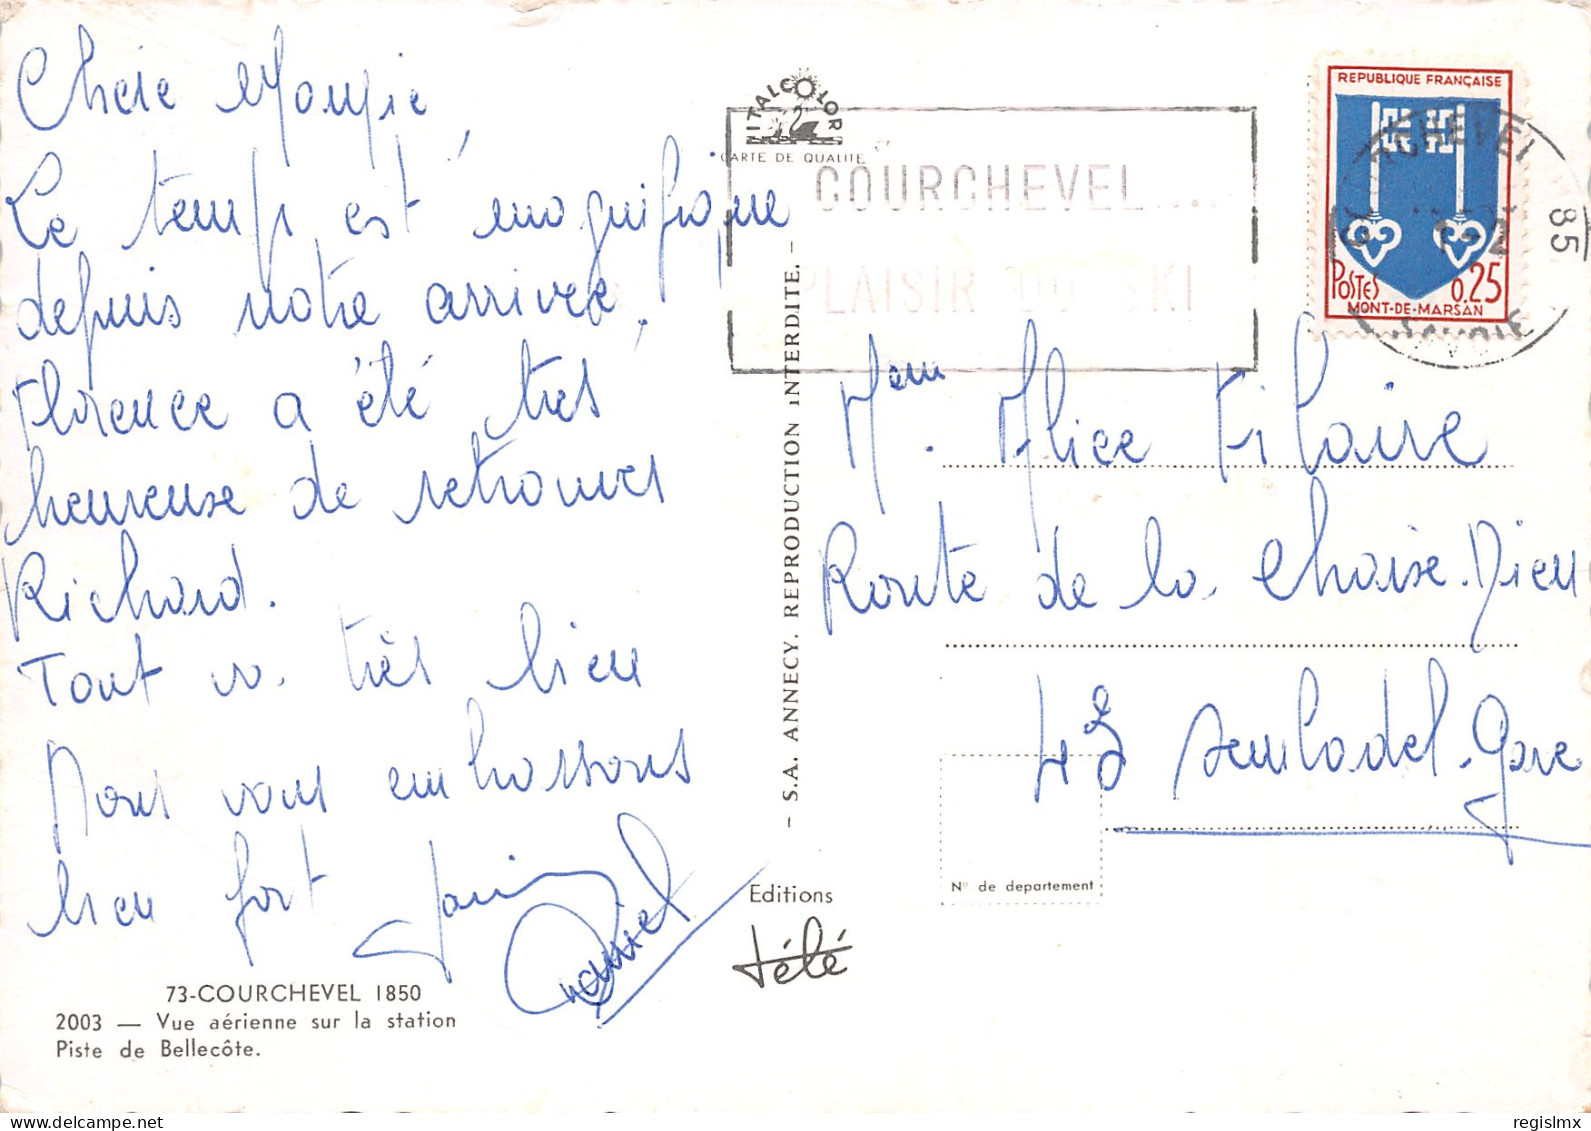 Chère Mougie,
Le temps est magnifique
depuis notre arrivée,
Florence a été très
heureuse de retrouver
Richard.
Tout va très bien
Nous vous embrassons
bien fort
Daniel
73-COURCHEVEL 1850
2003 — Vue aérienne sur la station
Piste de Bellecôte.
ITALCOLOR
CARTE DE QUALITÉ
- S.A. ANNECY. REPRODUCTION INTERDITE. -
Editions
télé
COURCHEVEL....
PLAISIR DU SKI
REPUBLIQUE FRANÇAISE
POSTES 0.25
MONT-DE-MARSAN
COURCHEVEL
SAVOIE
85
Mem. Alice Filaire
Route de la Chaise.Dieu
43 Sembadel-Gare
N° de departement
regislmx